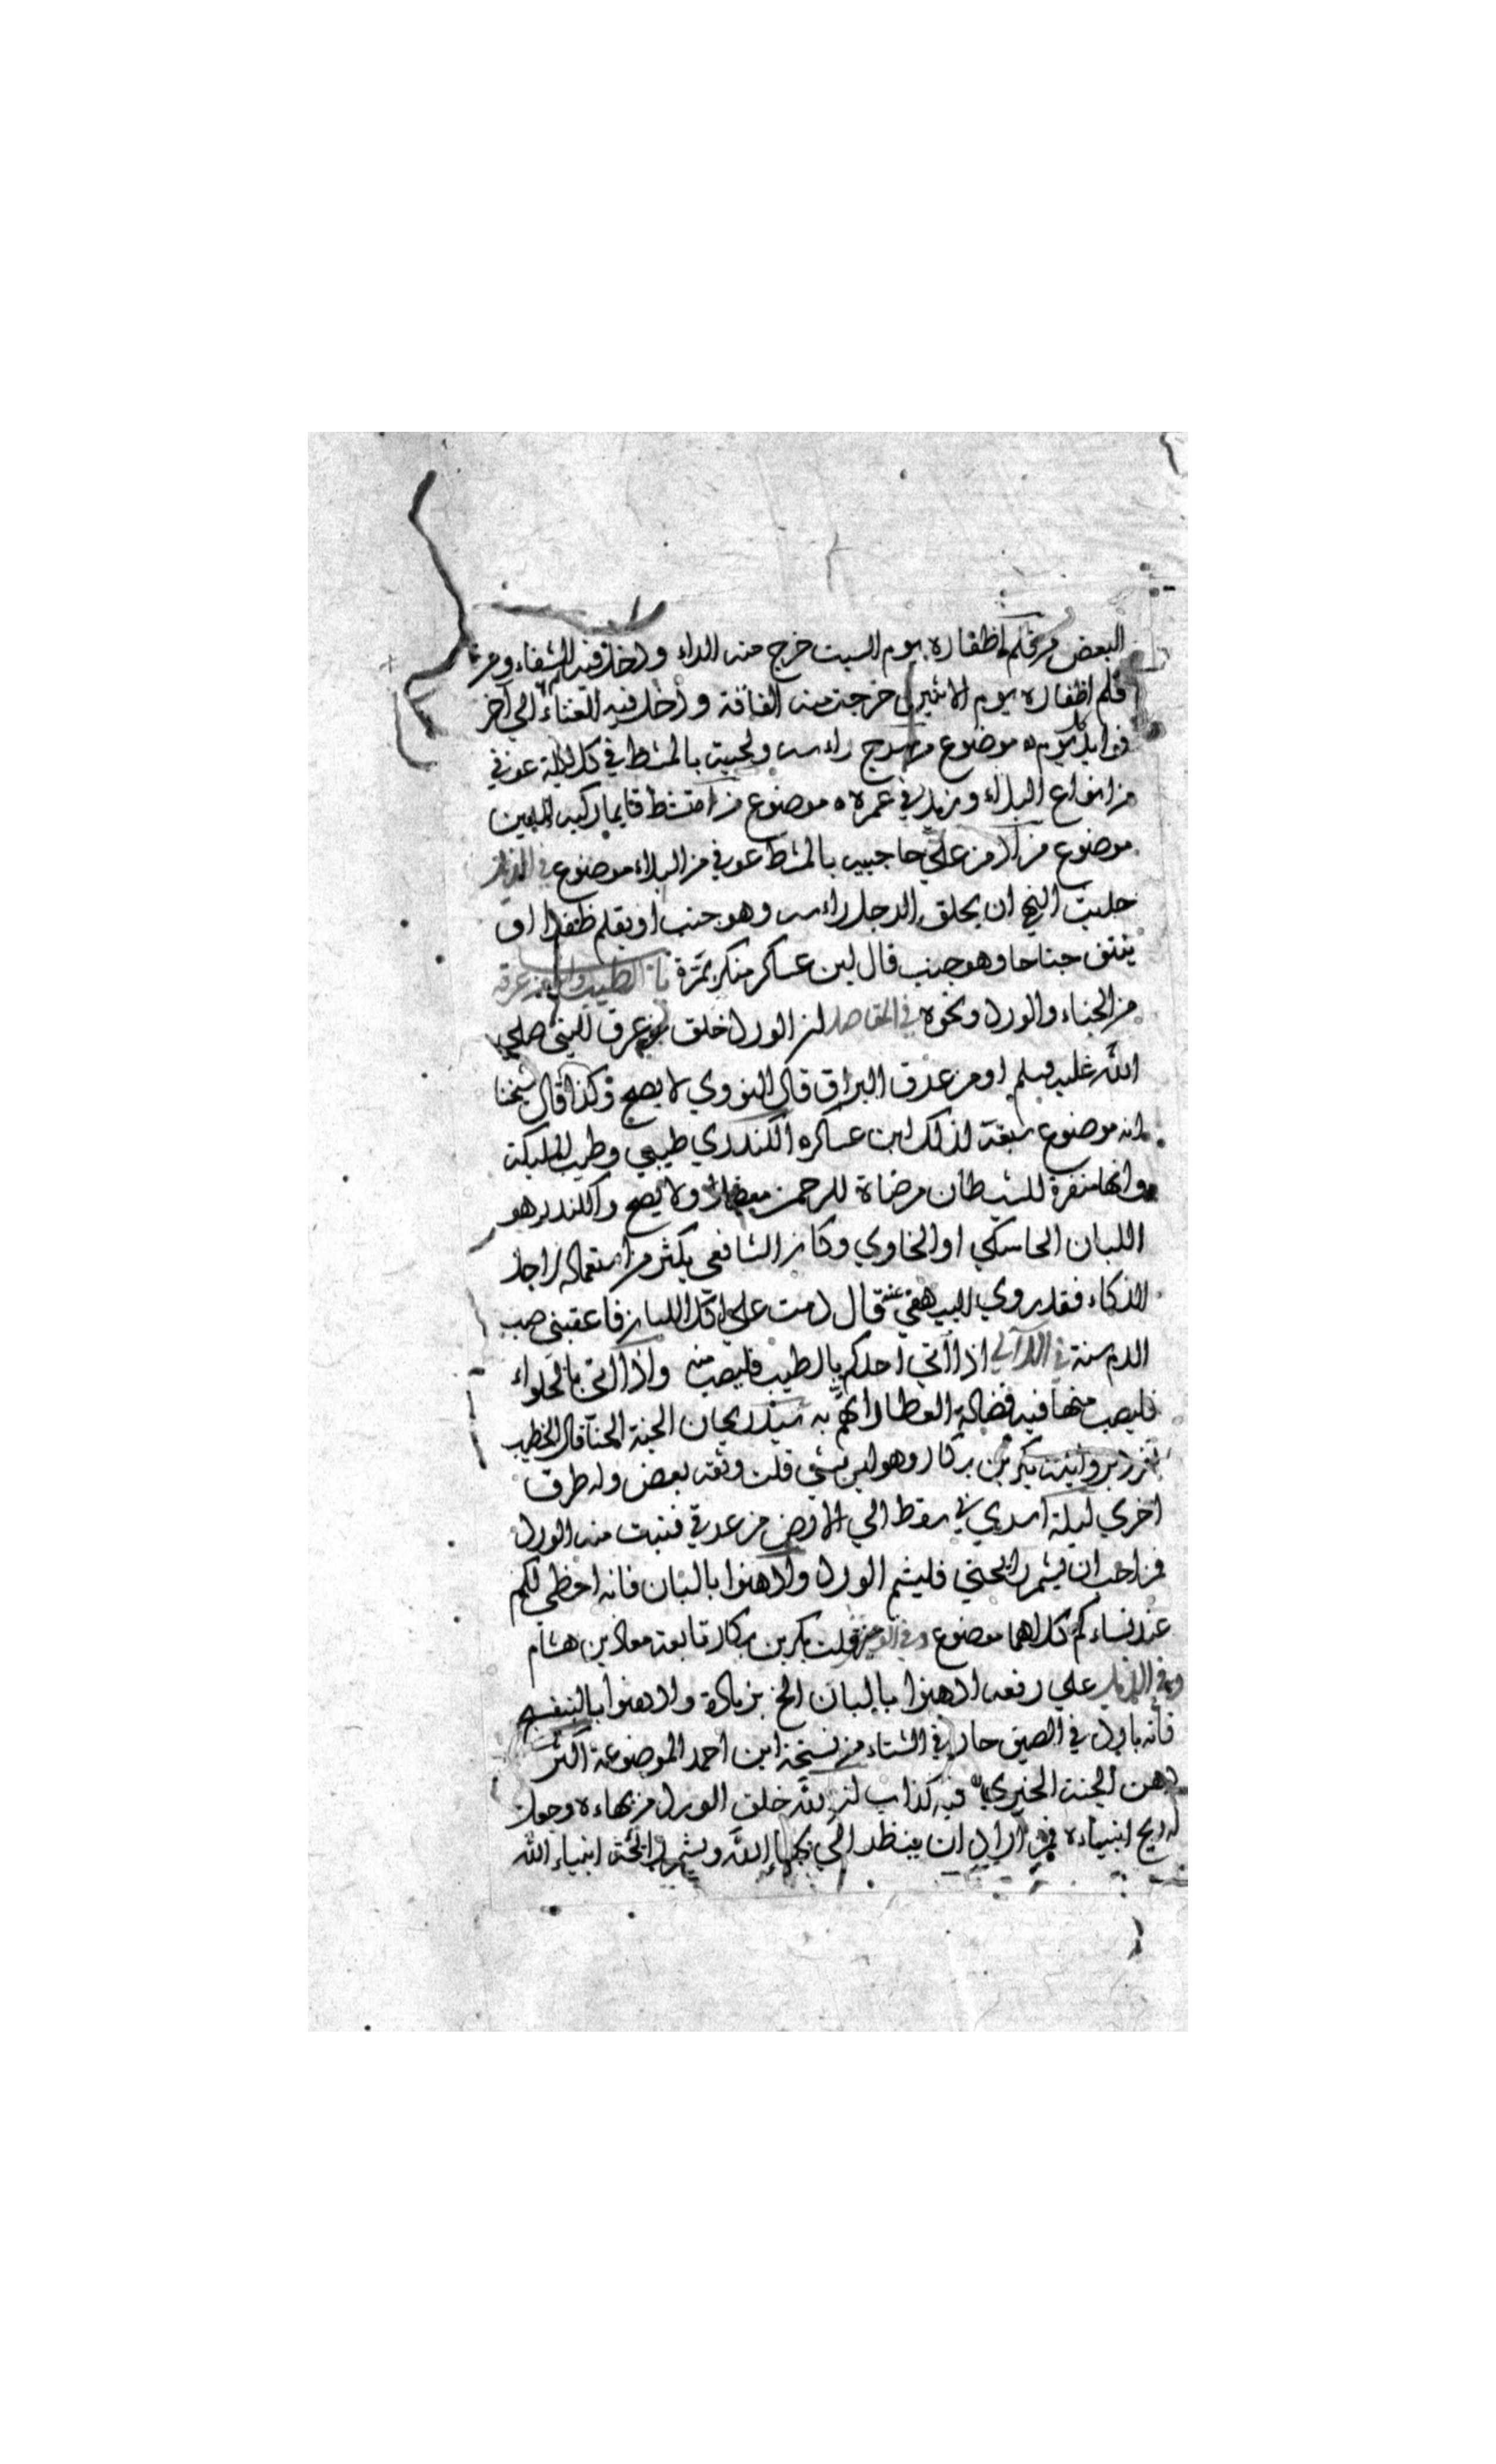 البعض من قلم اظفاره يوم السبت خرج منه الداء ودخل فيه الشفاء ومن
قلم اظفاره يوم الاثنين خرجت منه الفاقة ودخل فيه الغناء الي آخر
فوايد كل يوم ه موضوع من سرح راسه ولحيته بالمشط في كل ليلة عوفي
من انواع البلاء وزيد في عمره ه موضوع من امتشط قايما ركبه الدين
موضوع من امر علي حاجبيه بالمشط عوفي من البلاء موضوع في الذيل
حديث النهي ان يحلق الرجل راسه وهو جنب او يقلم ظفرا او
ينتف جناحا وهو جنب قال ابن عساكر منكر بمرة باب الطيب وانه من عرقه
من الحناء والورد ونحوه في المقاصد ان الورد خلق من عرق النبي صلي
الله عليه وسلم او من عرق البراق قال النووي لا يصح وكذا قال شيخنا
انه موضوع سبقه لذلك ابن عساكر ه الكندر طيبي وطيب الملايكة
وانها منفرة للشيطان مرضاة للرحمن ولا يصح والكندر هو
اللبان الحاسكي او الخاوي وكان الشافعي يكثر من استعماله لاجل
الذكاء فقد روي البيهقي عنه قال دمت علي اكل اللبان فاعقبني صب
الدم سنة في اللآلي اذا اتي احدكم بالطيب فليصب منه واذا اتي بالحلواء
فليصب منها فيه فضالة العطار اتهم به سيد ريحان الجنة الحنا قال الخطيب
تفرد بروايته بكر بن بكار وهو ليس بشي قلت وثقه بعض وله طرق
اخري ليلة اسري بي سقط الي الارض من عرقي فنبت منه الورد
فمن احب ان يشم رايحتي فليشم الورد وادهنوا بالبان فانه احظي لكم
عند نساءكم كلاهما موضوع وفي الوجيز قلت بكر بن بكار تابعه معاذ بن هشام
وفي الذيل علي رفعه ادهنوا بالبان الخ بزيادة وادهنوا بالبنفسج
فانه بارد في الصيف حار في الشتاء من نسخة ابن احمد الموضوعة اكثر
دهن الجنة الخيري فيه كذاب ان الله خلق الورد من بهاءه وجعل
له ريح انبياءه فمن اراد ان ينظر الي بهاء الله ويشم رائحة انبياء الله